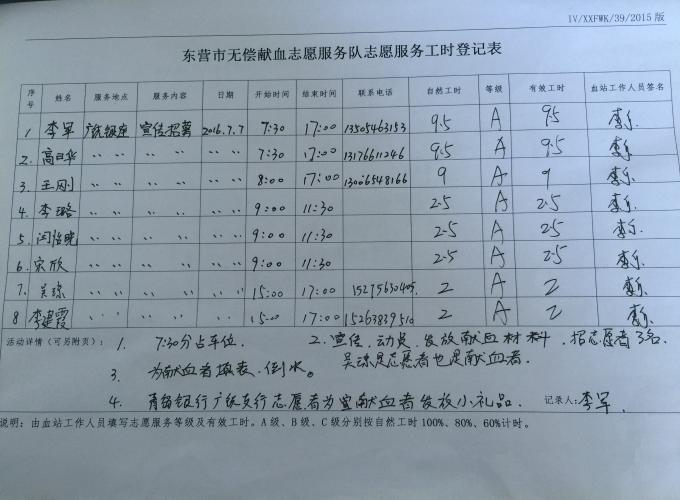 IV/XXFWK/39/2015 版
东营市无偿献血志愿服务队志愿服务工时登记表
序号 姓名 服务地点 服务内容 日期 开始时间 结束时间 联系电话 自然工时 等级 有效工时 血站工作人员签名
1 李军 广饶银座 宣传招募 2016.7.7 7:30 17:00 13505463153 9.5 A 9.5 李乐
2. 高日华 〃 〃 〃 〃 〃 〃 7:30 17:00 13176611246 9.5 A 9.5 李乐
3. 王刚 〃 〃 〃 〃 〃 〃 8:00 17:00 13006548166 9 A 9 李乐
4. 李璐 〃 〃 〃 〃 〃 〃 9:00 11:30 2.5 A 2.5 李乐
5. 闫怡晓 〃 〃 〃 〃 〃 〃 9:00 11:30 2.5 A 2.5 李乐
6. 宋欣 〃 〃 〃 〃 〃 〃 9:00 11:30 2.5 A 2.5 李乐
7. 吴琼 〃 〃 〃 〃 〃 〃 15:00 17:00 15275630405 2 A 2 李乐
8 李建霞 〃 〃 〃 〃 〃 〃 15:00 17:00 15263839510 2 A 2 李乐
活动详情（可另附页）： 1. 7:30分占车位. 2. 宣传.动员.发放献血材料.招志愿者3名.
吴琼是志愿者也是献血者.
3. 为献血者填表.倒水。
4. 青岛银行广饶支行志愿者为献血者发放小礼品. 记录人:李军.
说明：由血站工作人员填写志愿服务等级及有效工时。A 级、B 级、C 级分别按自然工时 100%、80%、60%计时。